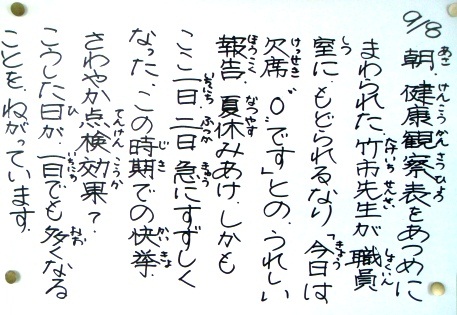 9/8 朝、健康観察表をあつめに
まわられた、竹市先生が職員
室に、もどられるなり「今日は
欠席“0”です」との、うれしい
報告。夏休みあけ、しかも
ここ一日、二日急にすずしく
なった、この時期での快挙。
さわやか点検効果？
こうした日が、一日でも多くなる
ことを、ねがっています。